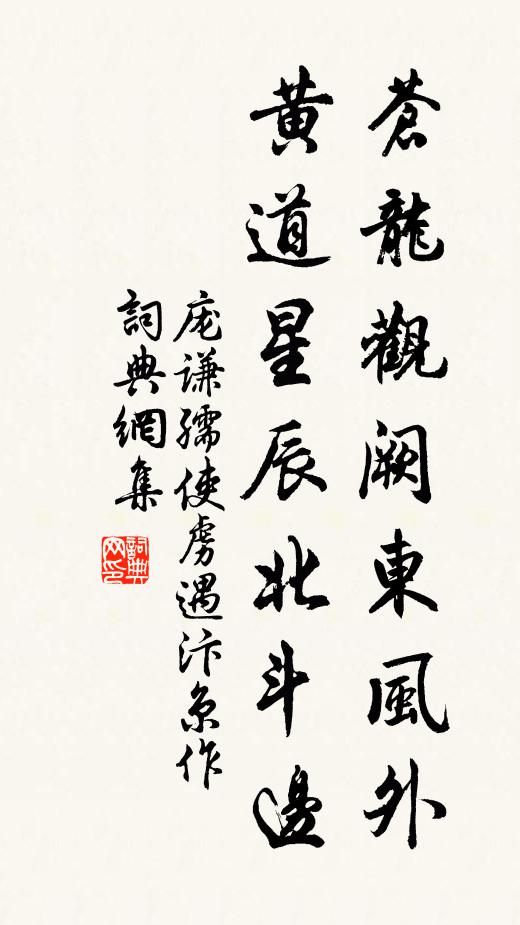 蒼龍觀闕東風外
黃道星辰北斗邊
庞谦孺使虜遇汴京作
詞典網集
詞典网印